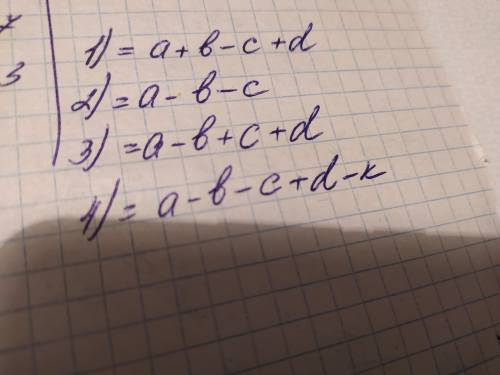 7
3
1) = a + b - c + d
2) = a - b - c
3) = a - b + c + d
4) = a - b - c + d - k